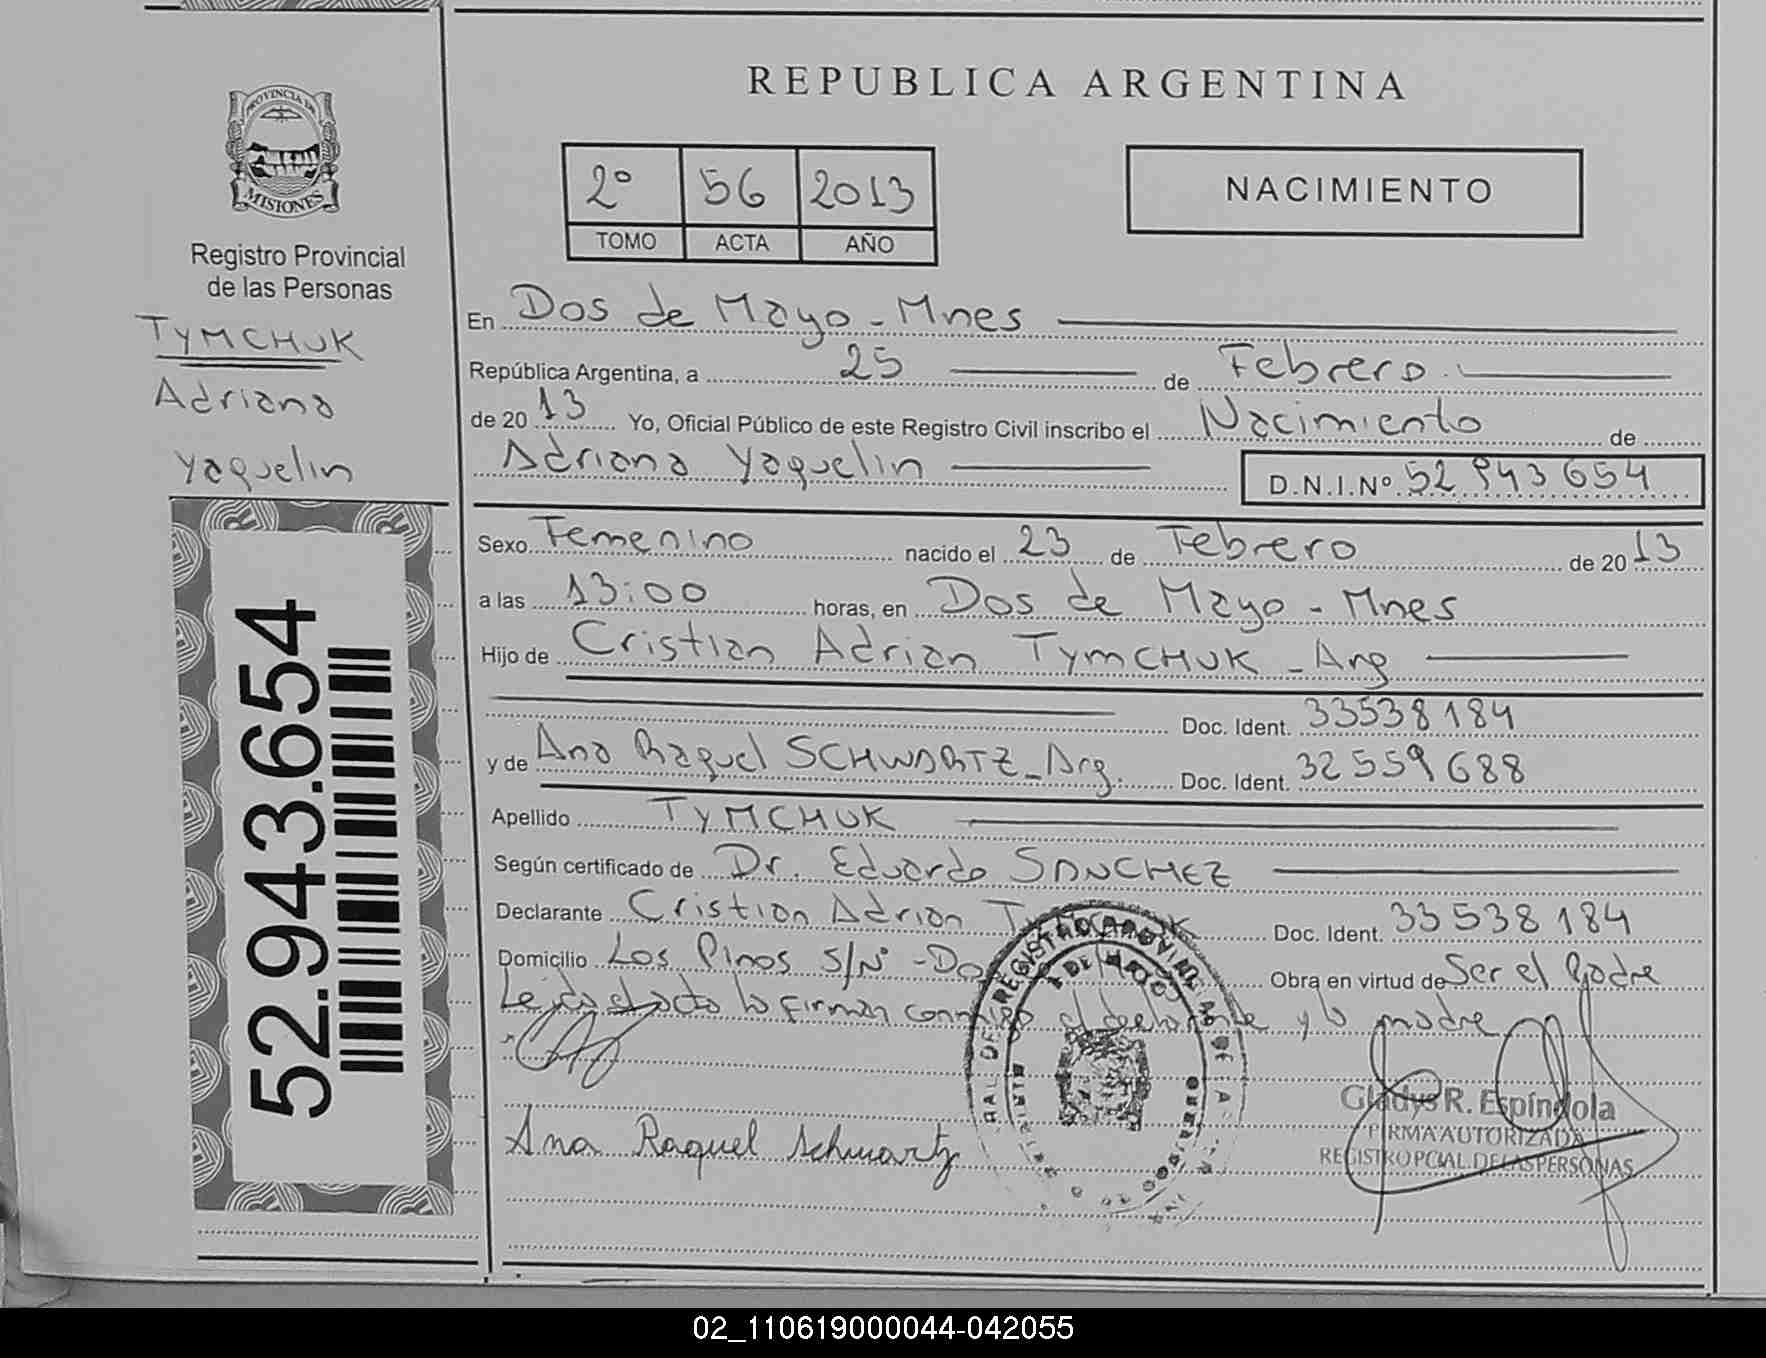 PROVINCIA DE
MISIONES
Registro Provincial
de las Personas
TYMCHUK
Adriana
Yaquelin
52.943.654
REPUBLICA ARGENTINA
2º 56 2013
TOMO ACTA AÑO
NACIMIENTO
En Dos de Mayo - Mnes
República Argentina, a 25 de Febrero
de 20 13 Yo, Oficial Público de este Registro Civil inscribo el Nacimiento de
Adriana Yaquelin D.N.I.Nº 52 943 654
Sexo Femenino nacido el 23 de Febrero de 20 13
a las 13:00 horas, en Dos de Mayo - Mnes
Hijo de Cristian Adrian TYMCHUK - Arg
Doc. Ident. 33538184
y de Ana Raquel SCHWARTZ - Arg. Doc. Ident. 32559688
Apellido TYMCHUK
Según certificado de Dr. Eduardo SANCHEZ
Declarante Cristian Adrian Doc. Ident. 33538184
Domicilio Los Pinos S/Nº - Do Obra en virtud de Ser el Padre
Leida el acta lo firman conmigo el declarante y la madre
Ana Raquel Schwartz
Gladys R. Espíndola
FIRMA AUTORIZADA
REGISTRO PCIAL. DE LAS PERSONAS
02_110619000044-042055